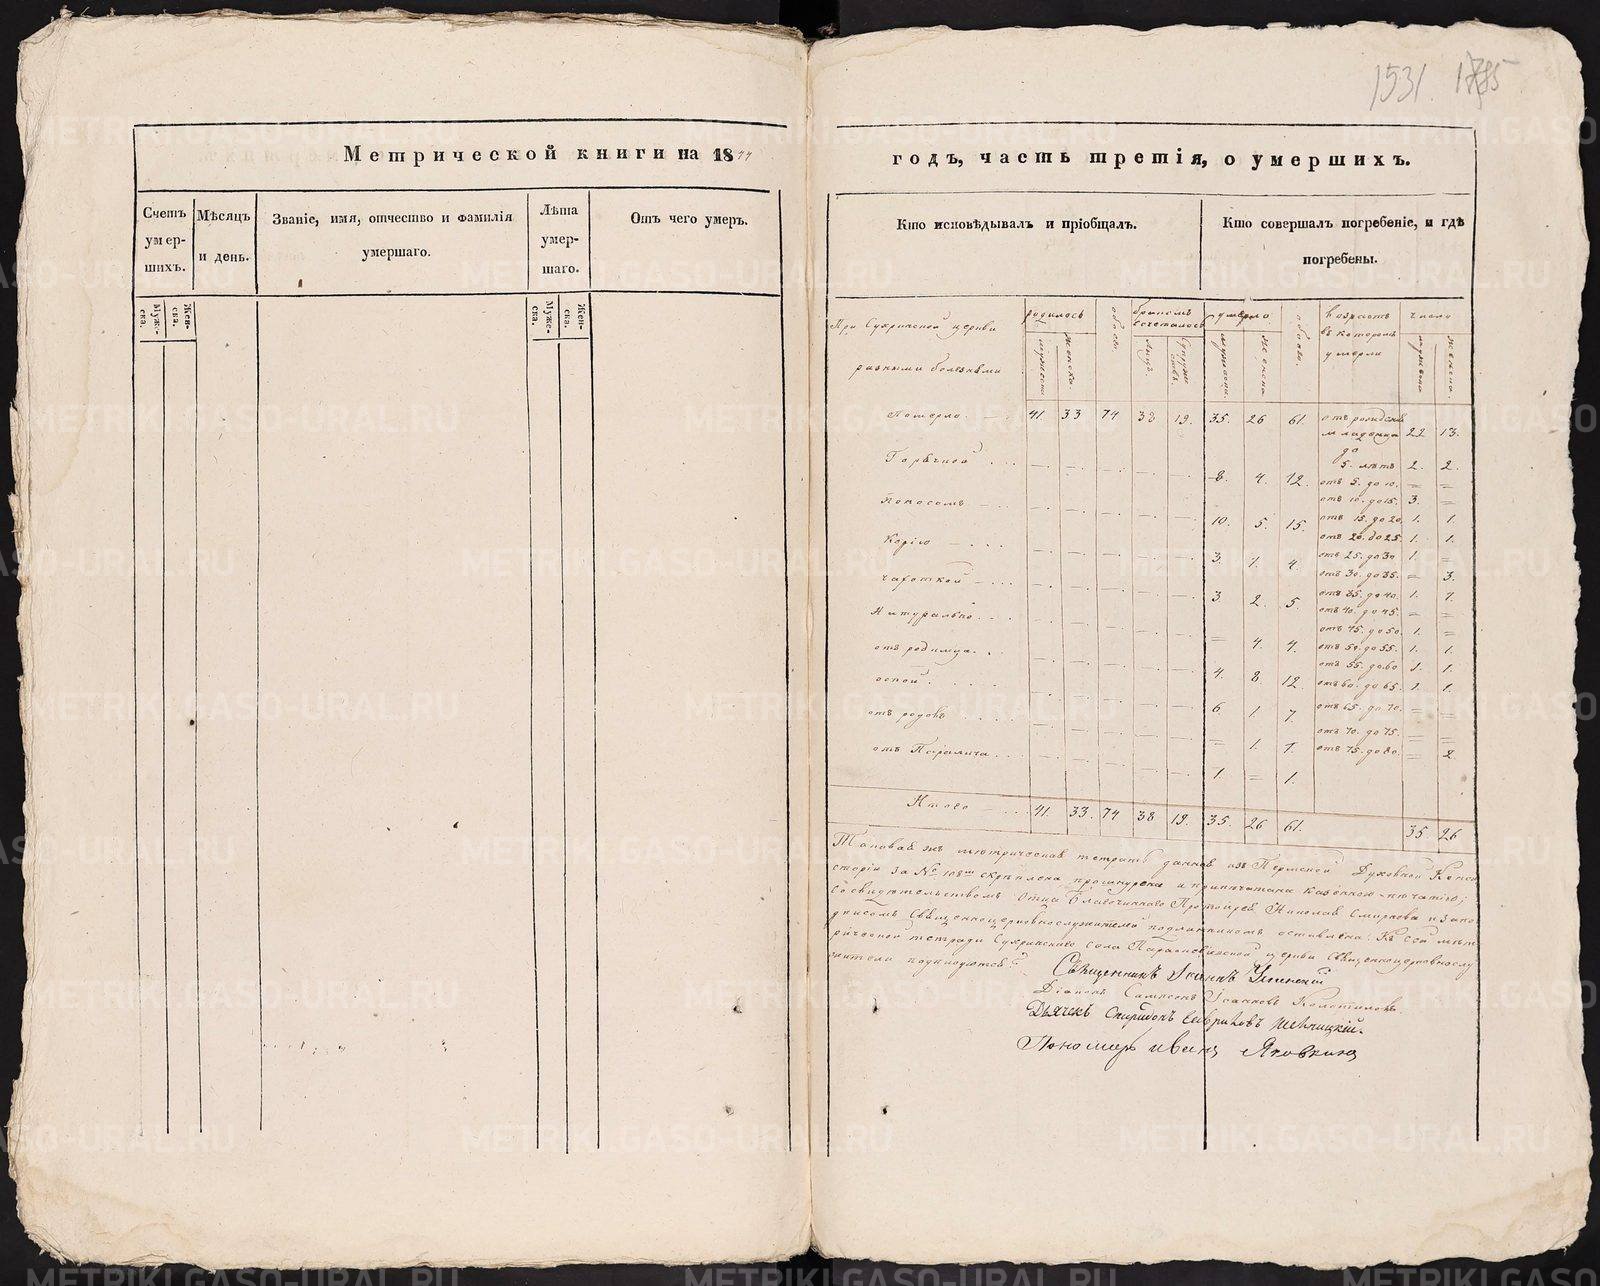 1531. 1785
Метрической книги на 1844
Счетъ умер-шихъ.
Муже-ска.
Жен-ска.
Мѣсяцъ и день.
Званіе, имя, отчество и фамилія умершаго.
Лѣта умер-шаго.
Муже-ска.
Жен-ска.
Отъ чего умеръ.
годъ, часть третія, о умершихъ.
Кто исповѣдывалъ и пріобщалъ.
Кто совершалъ погребеніе, и гдѣ погребены.
При Сухринской церкви
разными болезнями
родилось
мужеска
женска
обоего
бракомъ сочеталось
лицъ
супружествъ
умерло
мужеска
женска
обоего
возрастъ въ которомъ умерли
число
мужеска
женска
Померло 41. 33 74 38 19. 35. 26 61.
Горячкой 8. 4. 12.
Поносомъ 10. 5. 15.
Корію 3. 1. 4.
Чахоткой 3. 2. 5.
Натурально = 4. 4.
отъ родимца 4. 8. 12.
оспой 6. 1. 7.
отъ родовъ = 1. 1.
отъ Паралича 1. = 1.
отъ рождения младенца 22 13.
до 5. летъ 2. 2.
отъ 5. до 10. = =
отъ 10. до 15. 3. =
отъ 15. до 20. 1. 1.
отъ 20. до 25. 1. 1.
отъ 25. до 30 1. =
отъ 30. до 35. = 3.
отъ 35. до 40. 1. 1.
отъ 40. до 45. = =
отъ 45. до 50. 1. =
отъ 50. до 55. 1. 1.
отъ 55. до 60 1. 1.
отъ 60. до 65. 1. 1.
отъ 65. до 70. = =
отъ 70. до 75. = =
отъ 75. до 80. = 2.
Итого 41. 33. 74 38 19. 35. 26 61. 35. 26
Таковая жъ метрическая тетрать данная изъ Пермской Духовной Конси
сторіи за № 108мъ скрѣплена прошнурена и припечатана казенною печатію;
Cосвидѣтельствомъ Отца Благочиннаго Протоирея Николая Смирнова и запо
дписомъ Священноцерковнослужителей подлинникомъ оставлена. Къ сей мет
рической тетради Сухринскаго села церкви Священноцерковнослу
жители подписуются:
Священникъ Іоаннъ Успенскій
Діаконъ Сампсонъ Іоанновъ
Дьячекъ Спиридонъ
Пономарь Иванъ Яковкинъ
METRIKI.GASO-URAL.RU